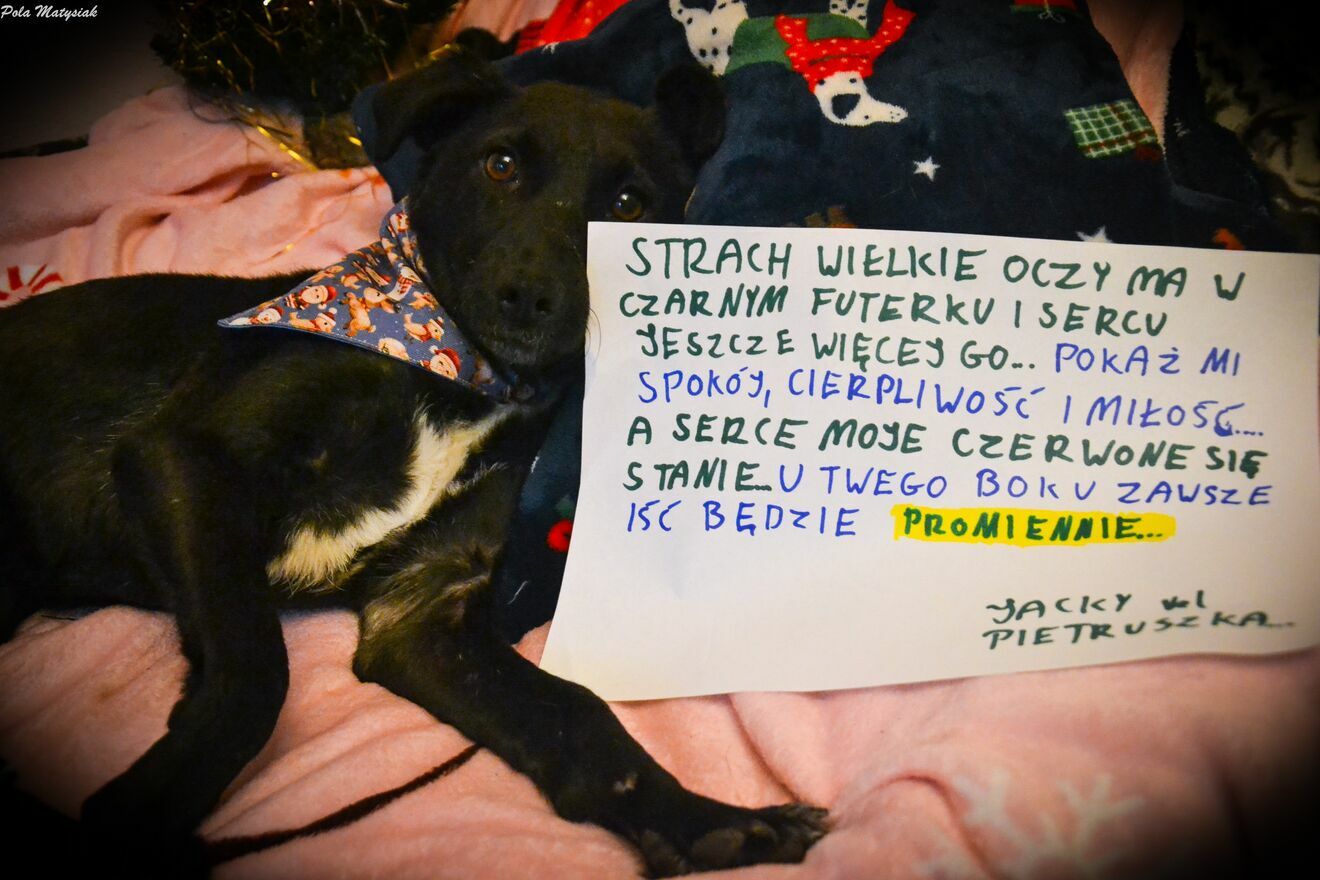 Pola Matysiak
STRACH WIELKIE OCZY MA W
CZARNYM FUTERKU I SERCU
JESZCZE WIĘCEJ GO... POKAŻ MI
SPOKÓJ, CIERPLIWOŚĆ I MIŁOŚĆ....
A SERCE MOJE CZERWONE SIĘ
STANIE... U TWEGO BOKU ZAWSZE
IŚĆ BĘDZIE PROMIENNIE...
JACKY vel
PIETRUSZKA...